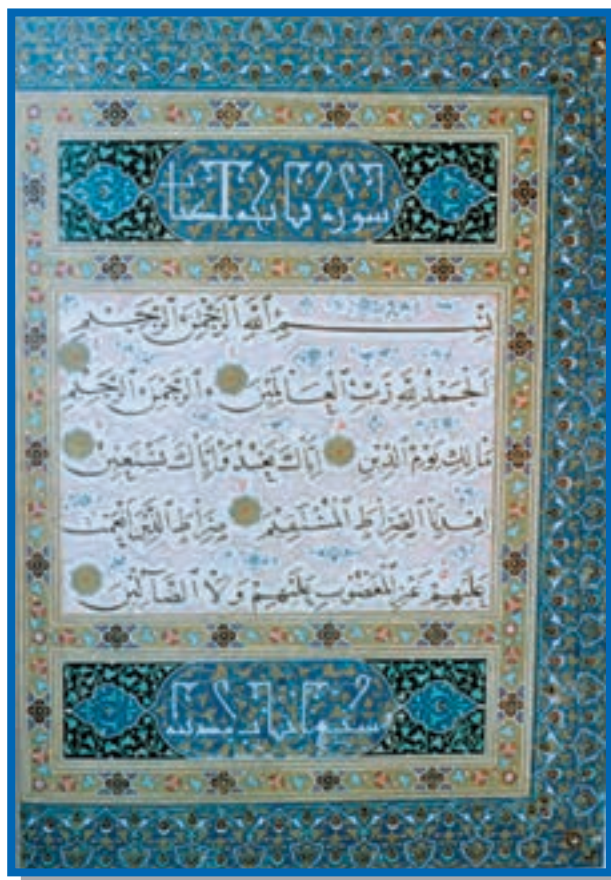 سورة فاتحة الكتاب
بِسْمِ ٱللَّهِ ٱلرَّحْمَٰنِ ٱلرَّحِيمِ
اَلْحَمْدُ لِلَّهِ رَبِّ ٱلْعَالَمِينَ ۝ ٱلرَّحْمَنِ ٱلرَّحِيمِ ۝
مَالِكِ يَوْمِ ٱلدِّينِ ۝ اِيَّاكَ نَعْبُدُ وَاِيَّاكَ نَسْتَعِينُ ۝
اِهْدِنَا ٱلصِّرَاطَ ٱلْمُسْتَقِيمَ ۝ صِرَاطَ ٱلَّذِينَ اَنْعَمْتَ
عَلَيْهِمْ غَيْرِ ٱلْمَغْضُوبِ عَلَيْهِمْ وَلَا ٱلضَّالِّينَ ۝
سبع ايات مدنية